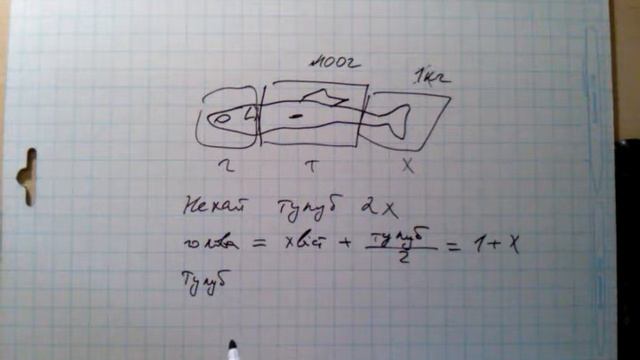 1кг
г т х
Нехай тулуб 2х
голова = хвіст + тулуб/2 = 1 + х
Тулуб